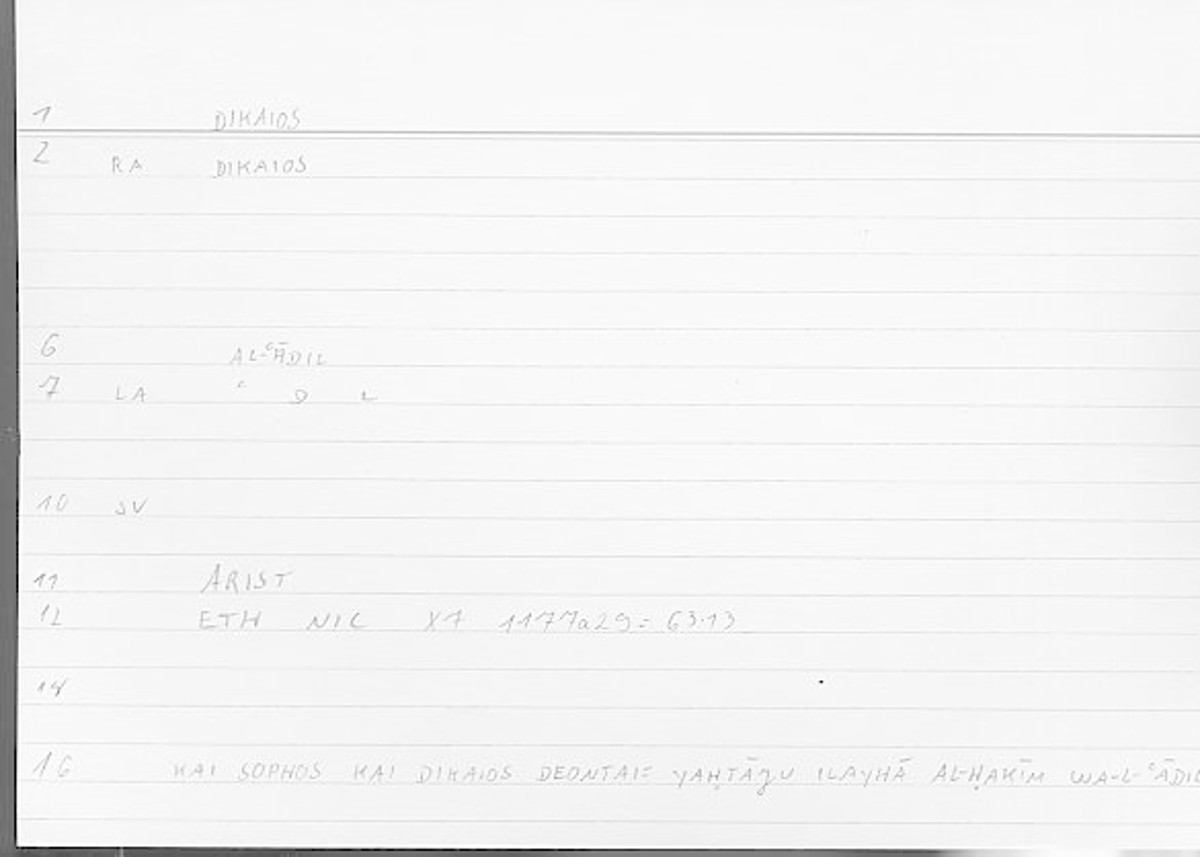 1 DIKAIOS
2 RA DIKAIOS
6 AL-ʿĀDIL
7 LA ʿ D L
10 SV
11 ARIST
12 ETH NIC X7 1177a29= 63.13
14
16 KAI SOPHOS KAI DIKAIOS DEONTAI= YAḤTĀǦU ILAYHĀ AL-ḤAKĪM WA-L-ʿĀDIL